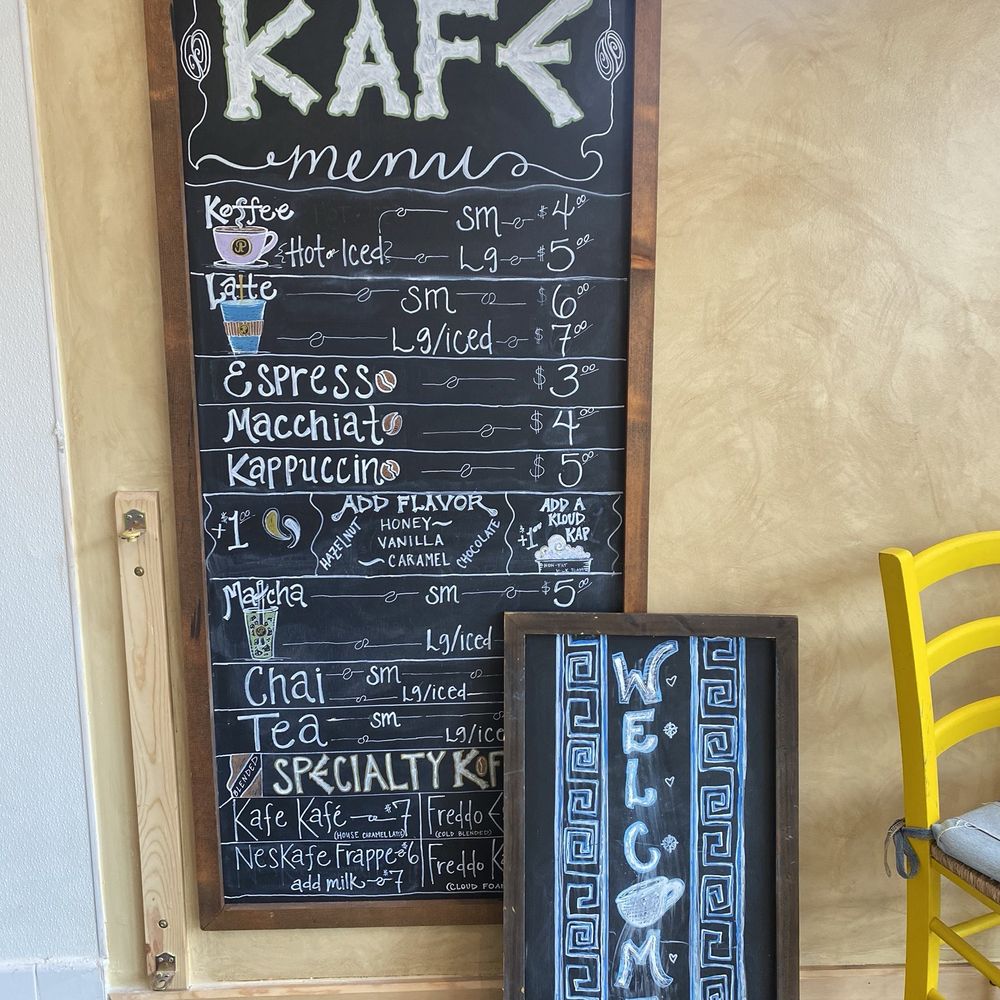 KAFÉ
menu
Koffee sm $4.00
{Hot or Iced} Lg $5.00
Latte sm $6.00
Lg/iced $7.00
Espresso $3.00
Macchiato $4.00
Kappuccino $5.00
+$1.00
ADD FLAVOR
HAZELNUT
HONEY
VANILLA
CARAMEL
CHOCOLATE
ADD A
KLOUD
KAP
+$1.00
Matcha sm $5.00
Lg/iced
Chai sm
Lg/iced
Tea sm
Lg/ice
BLENDED
SPECIALTY KOF
Kafe Kafé $7
(HOUSE CARAMEL LATTE)
Freddo E
(COLD BLENDED)
NesKafe Frappe $6
add milk $7
Freddo K
(CLOUD FOA
WELCOM